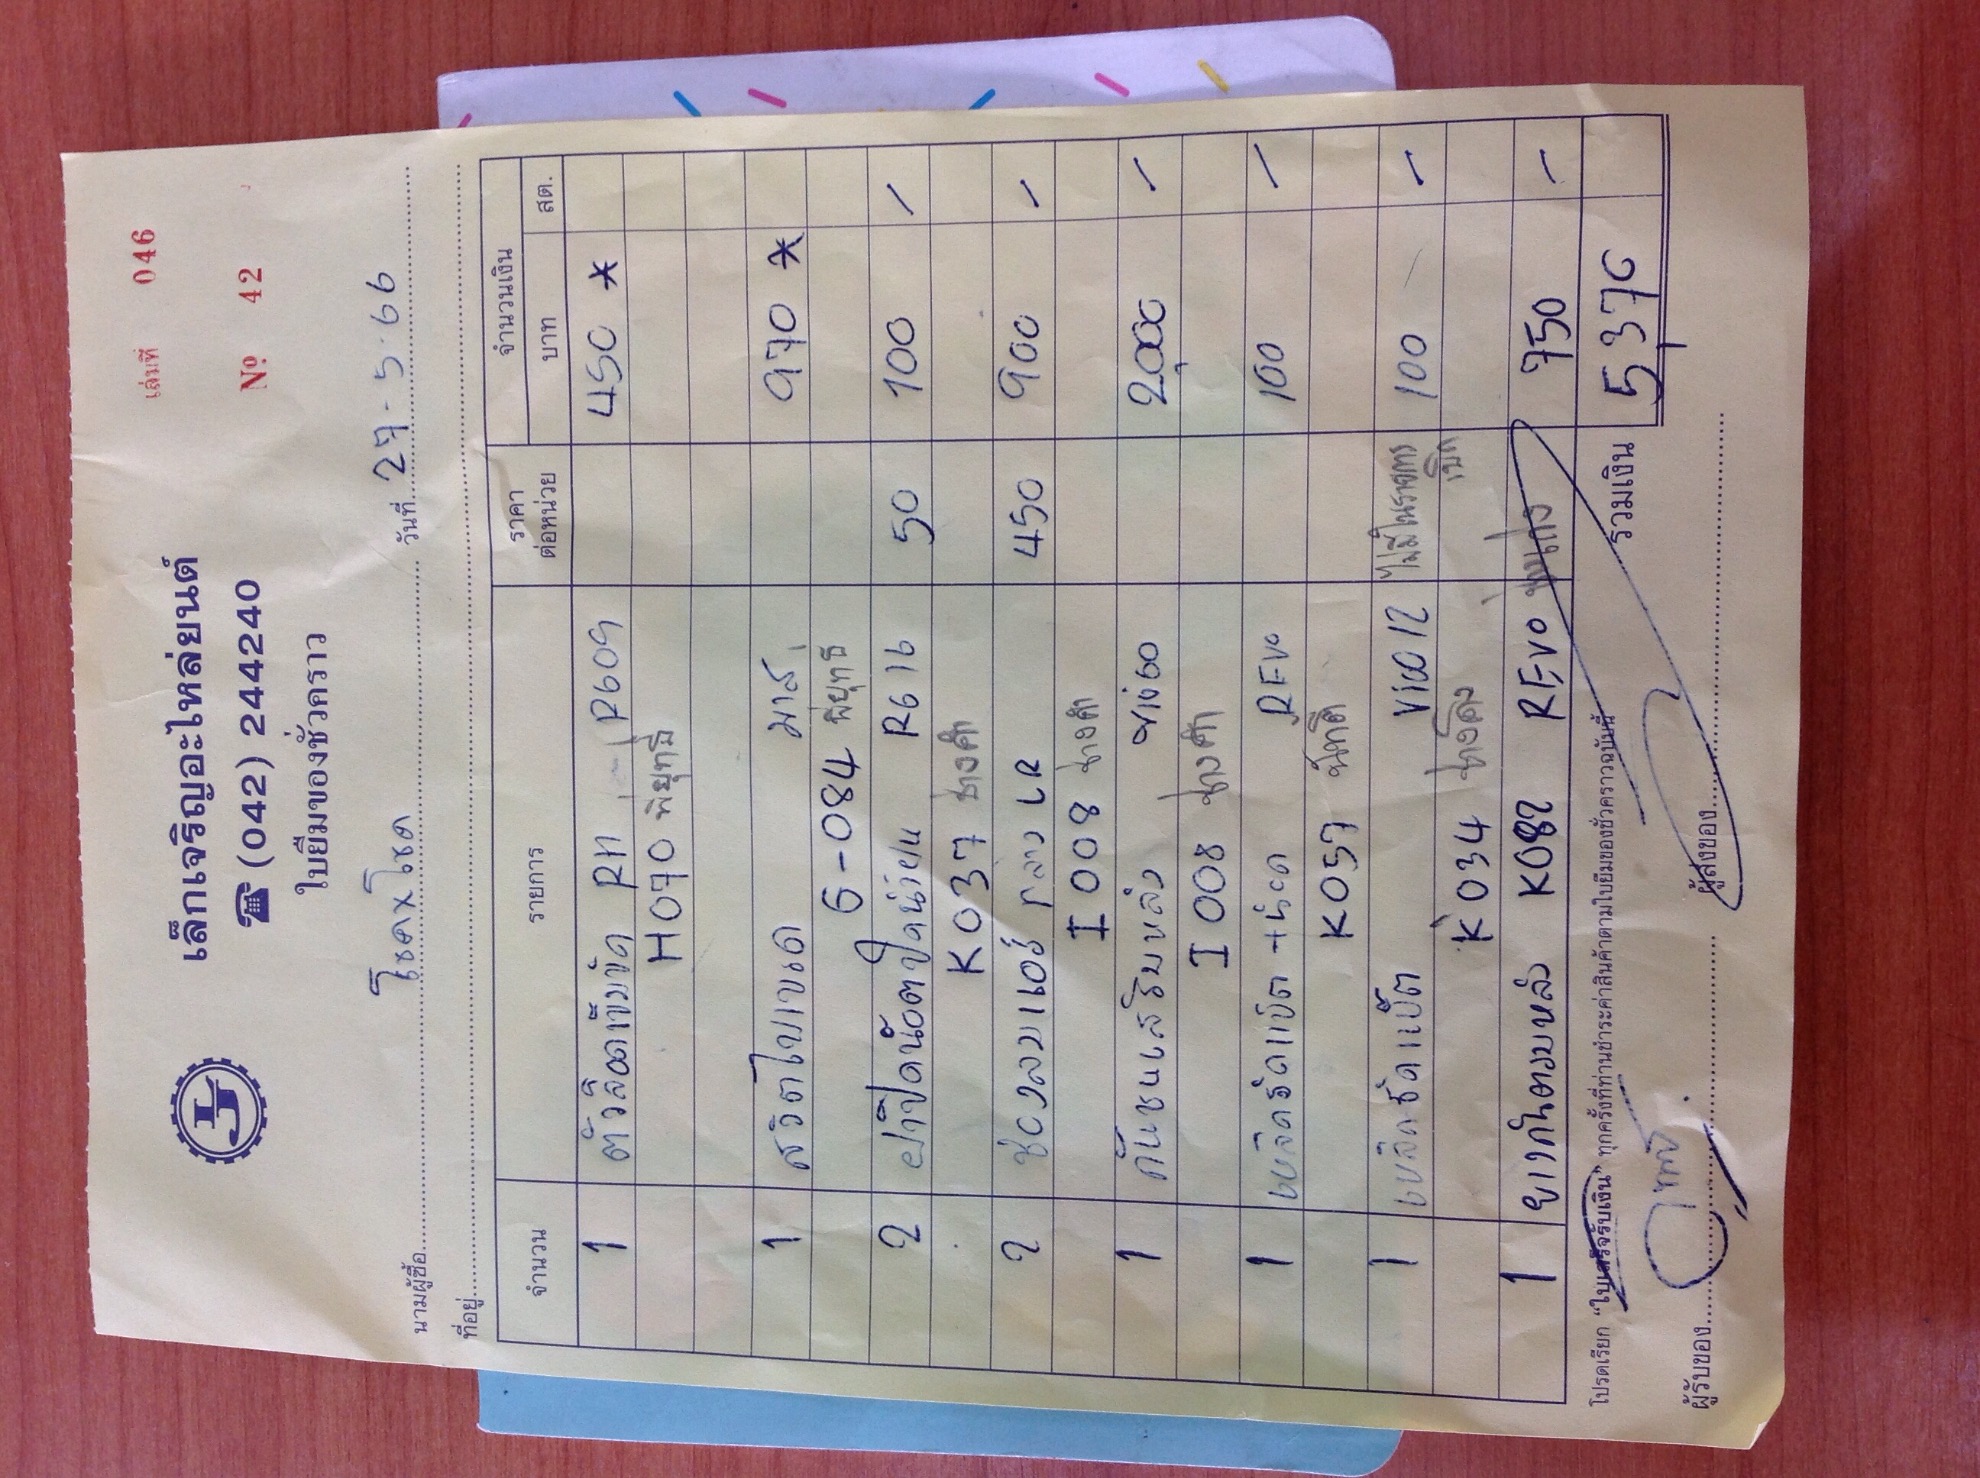 เล่มที่ 046
เล็กเจริญอะไหล่ยนต์
☎ (042) 244240
Nº 42
ใบยืมของชั่วคราว
นามผู้ซื้อ โชคxโชค วันที่ 27-5-66
ที่อยู่
จำนวน รายการ ราคาต่อหน่วย จำนวนเงิน บาท สต.
1 ตัวล๊อคเข็มขัด RH R609 450 *
H070 พิยุทธิ์
1 สวิตไฟเบรค มาส 970 *
6-084 พิยุทธิ์
2 ฝาปิดน้อตใบ R616 50 100 -
K037 ช่างดำ
2 ช่องลมแอร์ กลาง LR 450 900 -
I 008 ช่างดำ
1 กันชนเสริมหลัง วีโก้ 2,000 -
I 008 ช่างดำ
1 รัดแบ็ต + น๊อต REVO 100 -
K057
1 รัดแบ็ต VIGO 12 ไม่มีในรายการเบิก 100 -
K034
1 ยางกันหลัง K082 REVO 750 -
โปรดเรียก "ใบเสร็จรับเงิน" ทุกครั้งที่ท่านชำระค่าสินค้าตามใบยืมของชั่วคราวฉบับนี้
รวมเงิน 5,370
ผู้รับของ ผู้ส่งของ